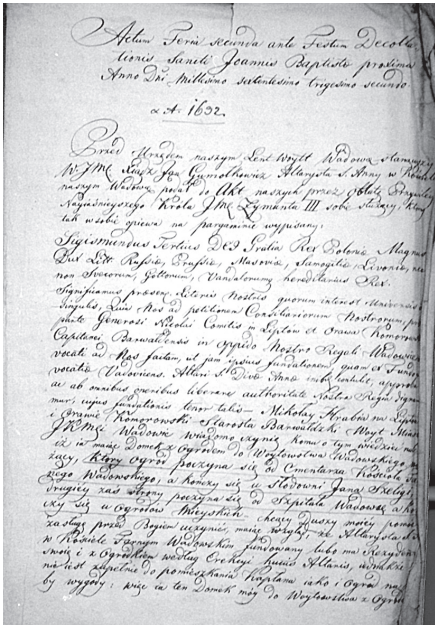 Actum Feria secunda ante Festum Decolla
tionis Sancti Joannis Baptiste proxima
Anno Dni Millesimo sexcentesimo trigesimo secundo
1632.
Przed Urzędem naszym Wadowa stanąwszy
W. JMC Xiądz Jan Altarysta S. Anny w Kościele
naszym Wadow. do Akt naszych przez
Nayiaśnieyszego Krola JMC Zygmunta III. sobie służący, który
tak w sobie opiewa na pargaminie wypisany:
Sigismundus Tertius Dei Gratia Rex Polonie, Magnus
Dux Litt. Russie, Prussie, Masovie, Samogitie, Livonie, nec
non Svecorum, Gottorum, Vandalorumq hereditarius Rex.
Significamus presen. Literis Nostris quorum interest Universis et
singulis, Quia Nos ad petitionem Consiliariorum Nostrorum, pro
parte Generosi Nicolai Comitis in Liptow et Orawa Komorows
Capitanei Barwaldensis in oppido Nostro Regali Wadowice
ad Nos factam, ut jam ipsius fundationem
Altari S. Dive Anne
ac ab omnibus oneribus liberam authoritate Nostra Regia
mur, cujus funditionis tenor talis – Mikolay Hrabia na Liptowie
i Orawie Komorowski Starosta Barwaldzki Woyt Miasta
JKMci Wadowic wiadomo czynię komu o tym wiedzieć
iż ia maiąc Domek z Ogrodem do Woytowstwa Wadowskiego
żący, który ogrod poczyna się od Cmentarza Kościoła
nego Wadowskiego, a kończy się u Słodowni Jana
drugiey zas strony poczyna się od Szpitala Wadow: a
czy się u ogrodow Mieyskich. chcący Duszy moiey
zasługę przed Bogiem uczynić, maiąc wzgląd, że Altarysta
w Kościele Farnym Wadowskim fundowany lubo ma Rezydency
swoię i z Ogrodkiem według Erekcyi Altaris, wszakże
nie iest zupełnie do pomieszkania Kapłana iako i Ogrod
by wygody: więc ia ten Domek moy do Woytowstwa z Ogro